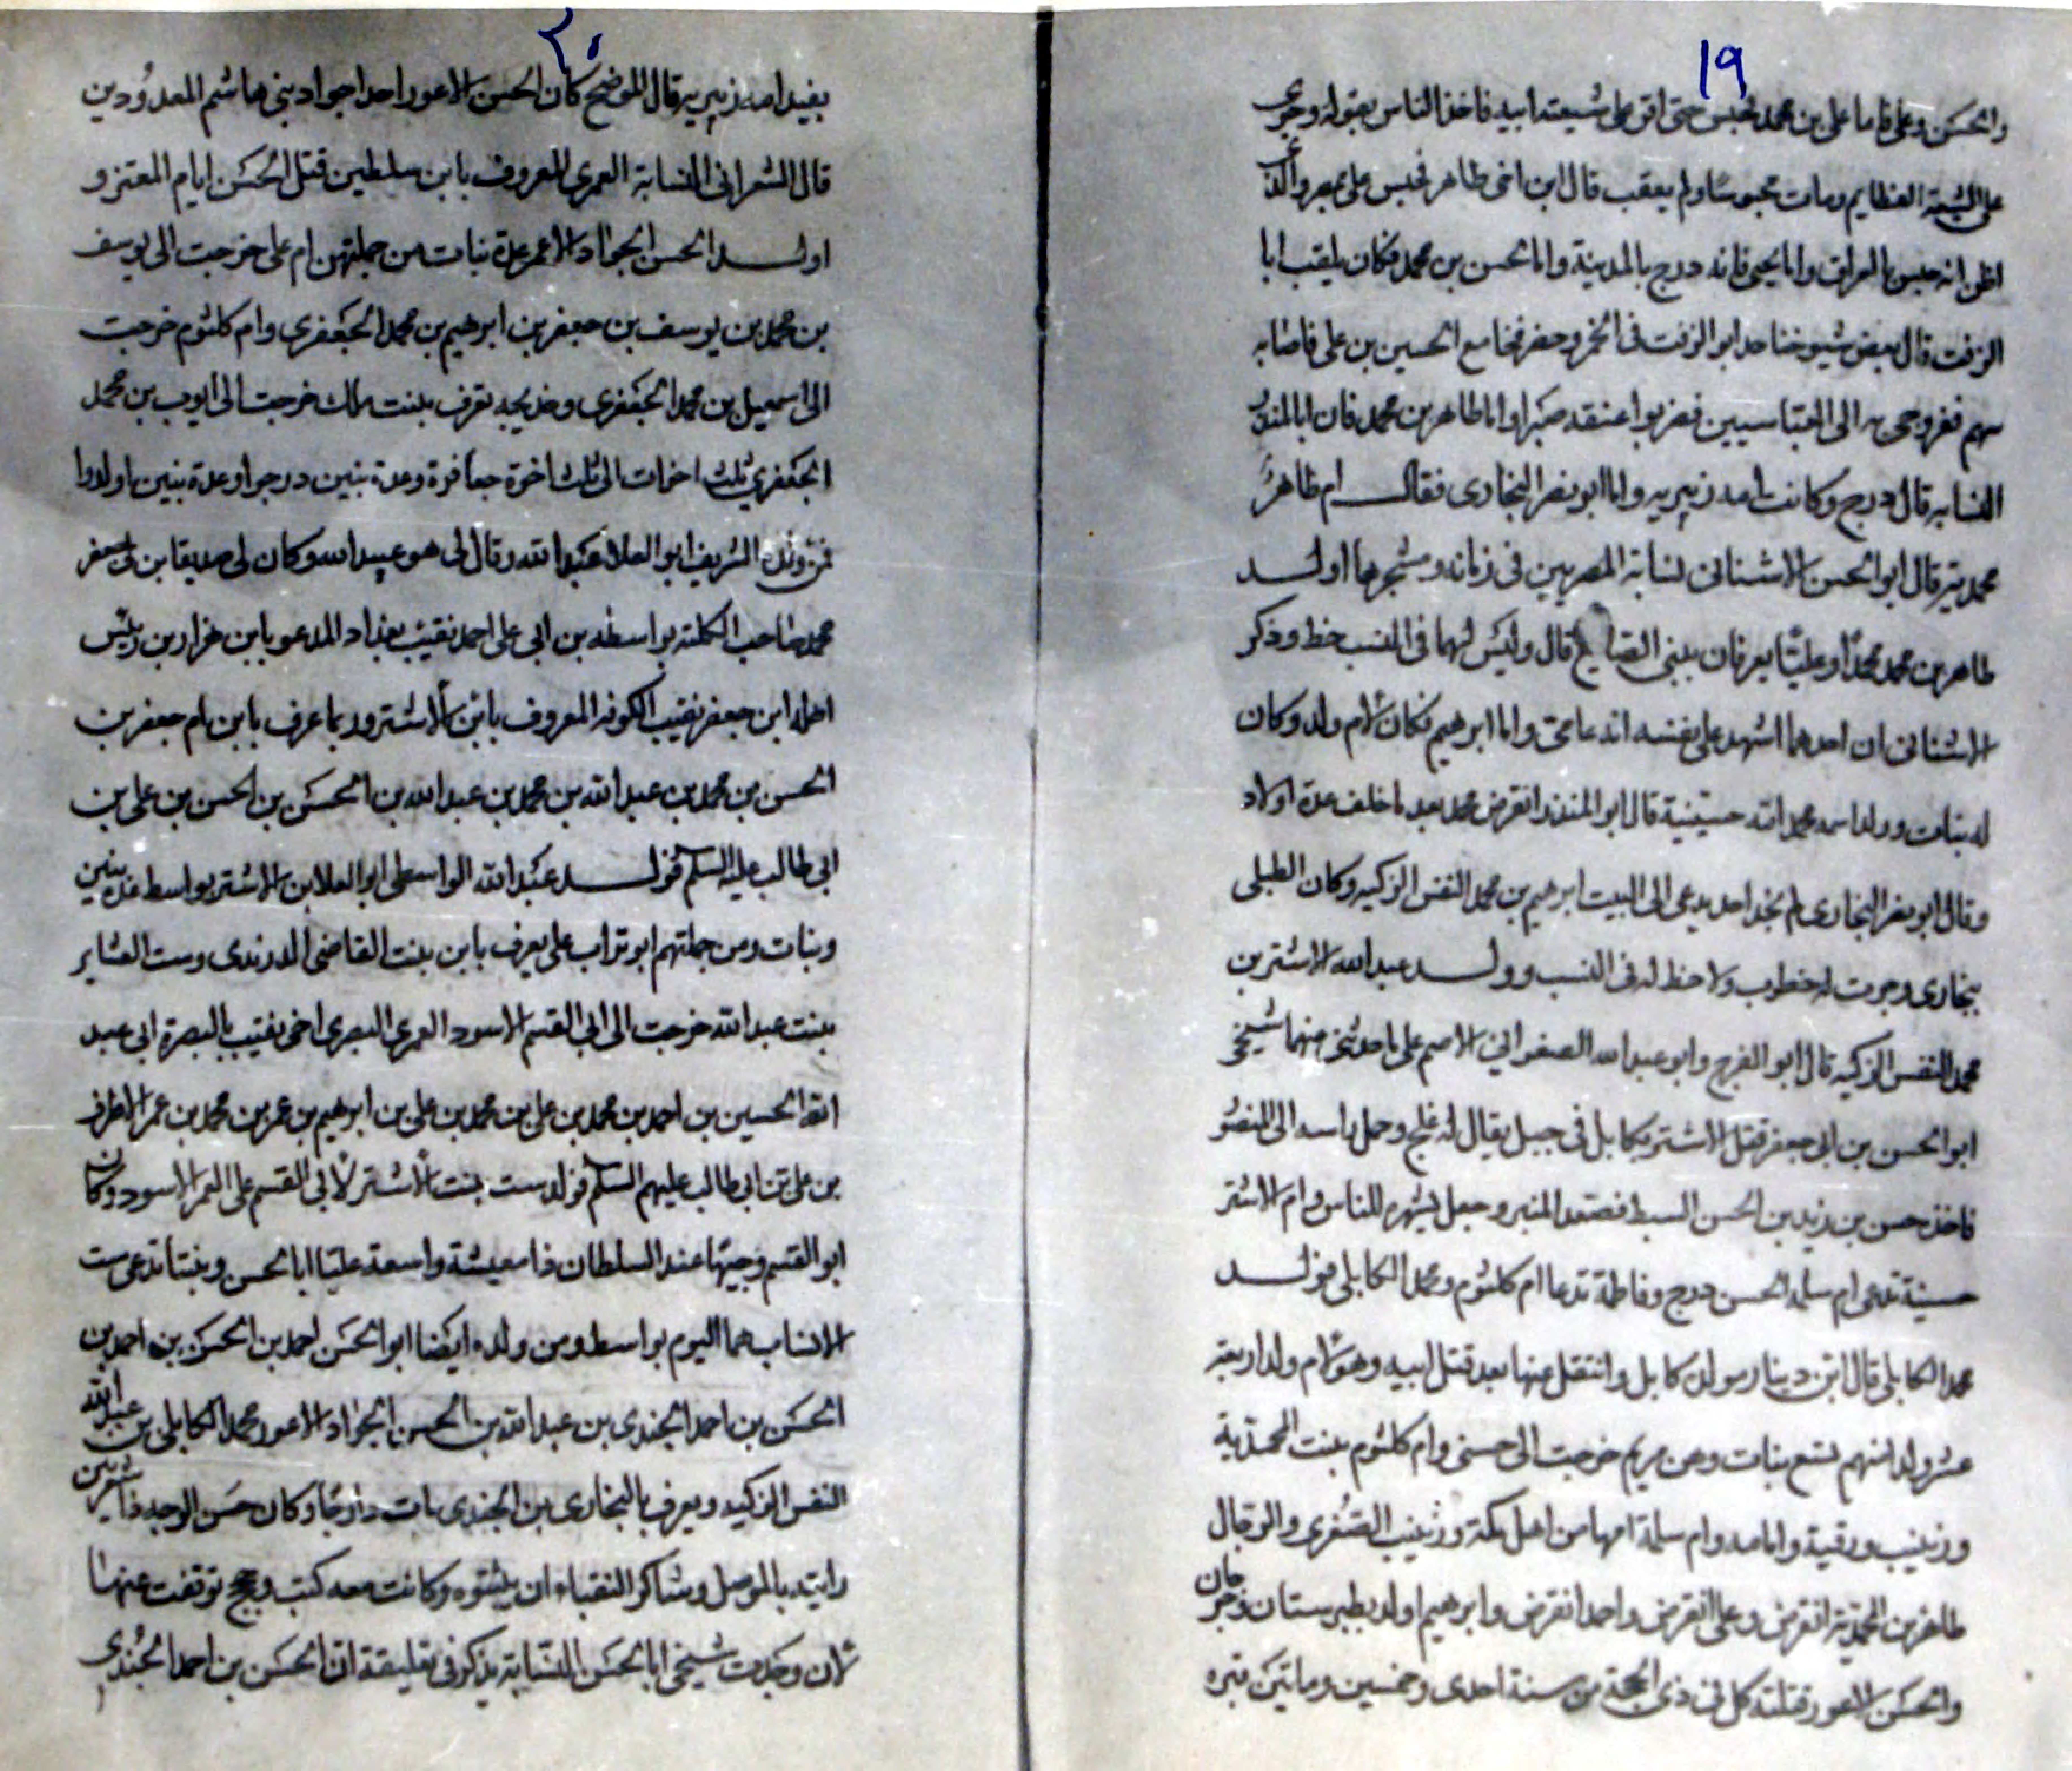 ١٩
والحسن وعلي فاما علي بن محمد فحبس حتى اقر على شيعته ابيه فاخذ الناس بقوله وجرى
على الشيعة العظايم ومات محبوسا ولم يعقب قال ابن اخي طاهر فحبس علي بمصر والذي
اظن انه حبس بالعراق واما يحيى فانه درج بالمدينة واما الحسن بن محمد فكان يلقب ابا
الزفت قال بعض شيوخنا حد ابو الزفت في الخمر وحضر فخا مع الحسين بن علي فاصابه
سهم ففر وجيء به الى العباسيين فضربوا عنقه صبرا واما طاهر بن محمد فان ابا المنذر
النسابه قال درج وكانت امه زبيريه واما ابو نصر البخاري فقال ام طاهر
محمديه قال ابو الحسن الاشناني نسابة المصريين في زمانه ومشجرها اولد
طاهر بن محمد محمدا وعليا يعرفان ببني الصايغ قال وليس لهما في النسب حظ وذكر
الاشناني ان احدهما اشهد على نفسه انه عامي واما ابرهيم فكان لام ولد وكان
له بنات وولدا اسمه محمد امه حسينية قال ابو المنذر انقرض محمد بعد ما خلف عدة اولاد
وقال ابو نصر البخاري لم نجد احد يدعي الى البيت ابرهيم بن محمد النفس الزكيه وكان الطبلي
ببخارى وجرت له خطوب ولا حظ له في النسب وولد عبد الله الاشتر بن
محمد النفس الزكيه قال ابو الفرج وابو عبد الله الصفواني الاصم على ما حدثني عنهما شيخي
ابو الحسن بن ابي جعفر قتل الاشتر بكابل في جبل يقال له علج وحمل راسه الى المنصور
فاخذه حسن بن زيد بن الحسن السبط فصعد المنبر وجعل يشهره للناس وام الاشتر
حسينة تدعى ام سلمه الحسن درج وفاطمة تدعا ام كلثوم ومحمد الكابلي فولد
محمد الكابلي قال ابن دينار مولده كابل وانتقل عنها بعد قتل ابيه وهو لام ولد اربعة
عشر ولدا منهم تسع بنات وهن مريم خرجت الى حسني وام كلثوم بنت المحمدية
وزينب ورقية وامامه وام سلمة امها من اهل مكة وزينب الصغرى والرجال
طاهر بن المحمدية انقرض وعلي انقرض واحمد انقرض وابرهيم اولد بطبرستان وجرجان
والحسن الاعور قتلته في ذي الحجة من سنة احدى وخمسين وماتين قبره
٢٠
بفيد امه زبيريه قال الموضح كان الحسن الاعور احد اجواد بني هاشم المعدودين
قال الشعراني النسابة العمري المعروف بابن سلطين قتل الحسن ايام المعتز و
اولد الحسن الجواد الاعور عدة بنات من جملتهن ام علي خرجت الى يوسف
بن محمد بن يوسف بن جعفر بن ابرهيم بن محمد الجعفري وام كلثوم خرجت
الى اسمعيل بن محمد الجعفري وخديجه تعرف ببنت ملك خرجت الى ايوب بن محمد
الجعفري ثلث اخوات الى ثلث اخوة جعافرة وعدة بنين درجوا وعدة بنين اولدوا
فمن ولده الشريف ابو العلا عبد الله وقال لي هو عبيد الله وكان لي صديقا ابن ابي جعفر
محمد صاحب الكلته بواسطه بن ابي علي احمد نقيب بغداد المدعو بابن
ابن جعفر نقيب الكوفه المعروف بابن الاشتر وربما عرف بابن بام جعفر بن
الحسن بن محمد بن عبد الله بن محمد بن عبد الله بن الحسن بن الحسن بن علي بن
ابي طالب عليه السلم فولد عبد الله الواسطي ابو العلا بن الاشتر بواسط عدة بنين
وبنات ومن جملتهم ابو تراب علي يعرف بابن بنت القاضي الدرندى وست العشاير
بنت عبد الله خرجت الى ابي القسم الاسود العمري البصري اخي نقيب بالبصرة ابي عبد
الله الحسين بن احمد بن محمد بن علي بن محمد بن علي بن ابرهيم بن عمر بن محمد بن عمر الاطرف
بن علي بن ابي طالب عليهم السلم فولدت ست بنت الاشتر لابي القسم علي العمري الاسود وكان
ابو القسم وجيها عند السلطان ذا معيشة واسعة عليا ابا الحسن وبنتا تدعى ست
الانساب هما اليوم بواسط ومن ولده ايضا ابو الحسن احمد بن الحسن بن احمد بن
الحسن بن احمد الجندي بن عبد الله بن الحسن الجواد الاعور محمد الكابلي بن عبد الله
النفس الزكيه ويعرف بالبخاري بن الجندي مات دارجا وكان حسن الوجه
رايته بالموصل وشاكر النقباء ان يثبتوه وكانت معه كتب وحجج توقفت عنها
لان وجدت شيخي ابا الحسن النسابة يذكر في تعليقة ان الحسن بن احمد الجندي